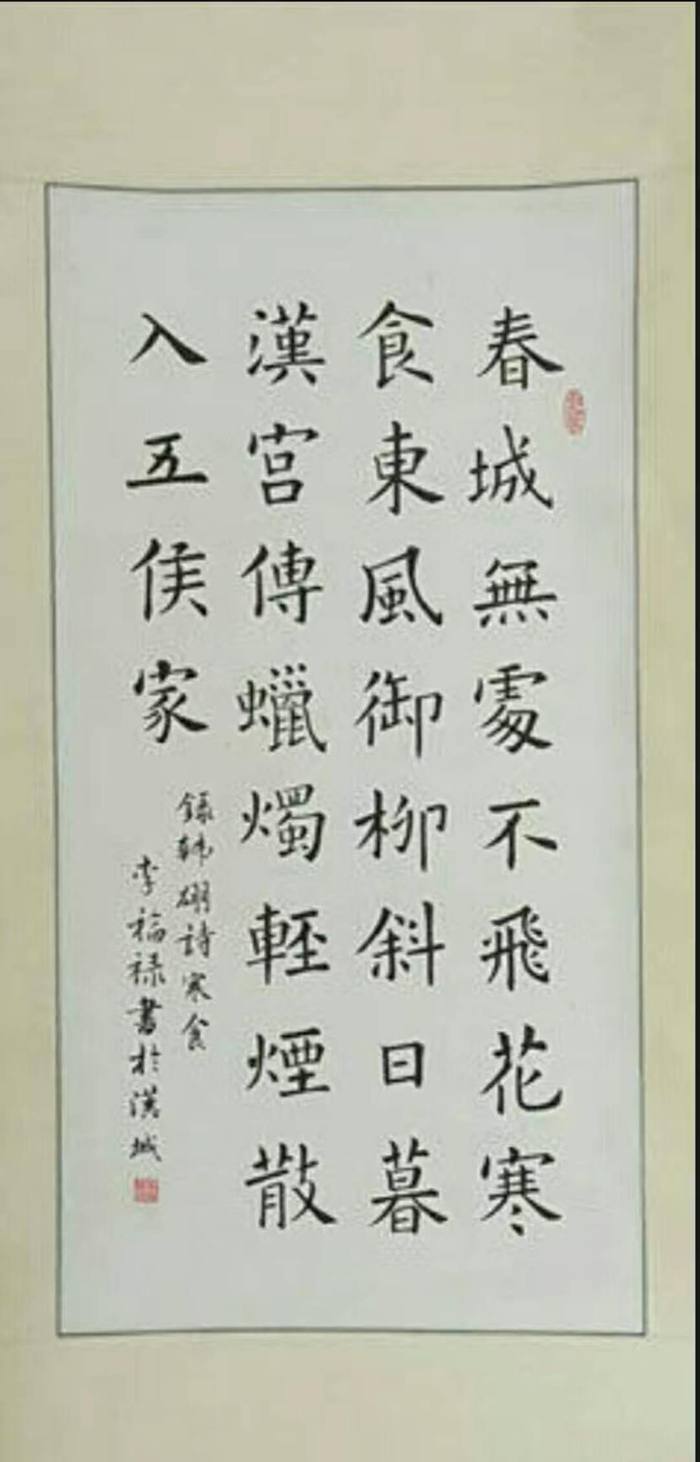 春城無處不飛花寒
食東風御柳斜日暮
漢宮傳蠟燭輕煙散
入五侯家
錄韩翃詩寒食
李福禄書於漢城